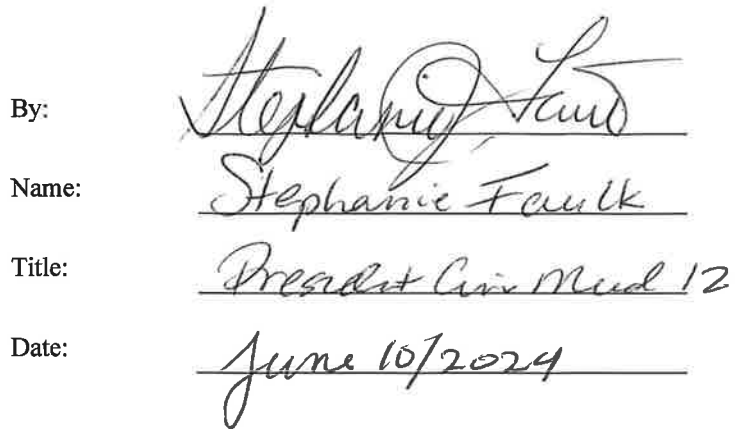 By: Stephanie Faulk
Name: Stephanie Faulk
Title: President Mud 12
Date: June 10/2024